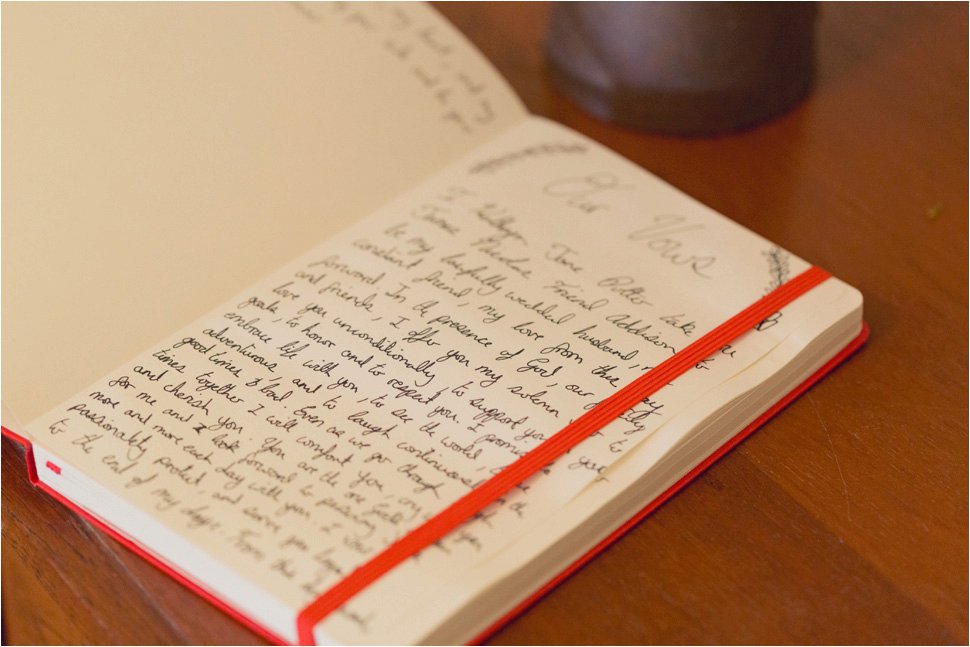 Our Vows
I Jane Potter take you
Friend Addison, to
be my lawfully wedded husband, my
constant friend, my love from this day
forward In the presence of God, our family
and friends, I offer you my solemn vow to
love you unconditionally, to support you in your
goals, to honor and to respect you. I promise to
embrace life with you, to see the world,
adventurous, and to laugh continuously in the
good times & bad. Even as we go through
times together I will comfort you, cry
and cherish you. You are the one God
for me and I look forward to
more and more each day with you. I vow
passionately protect, and serve you
to the end of my days. From this